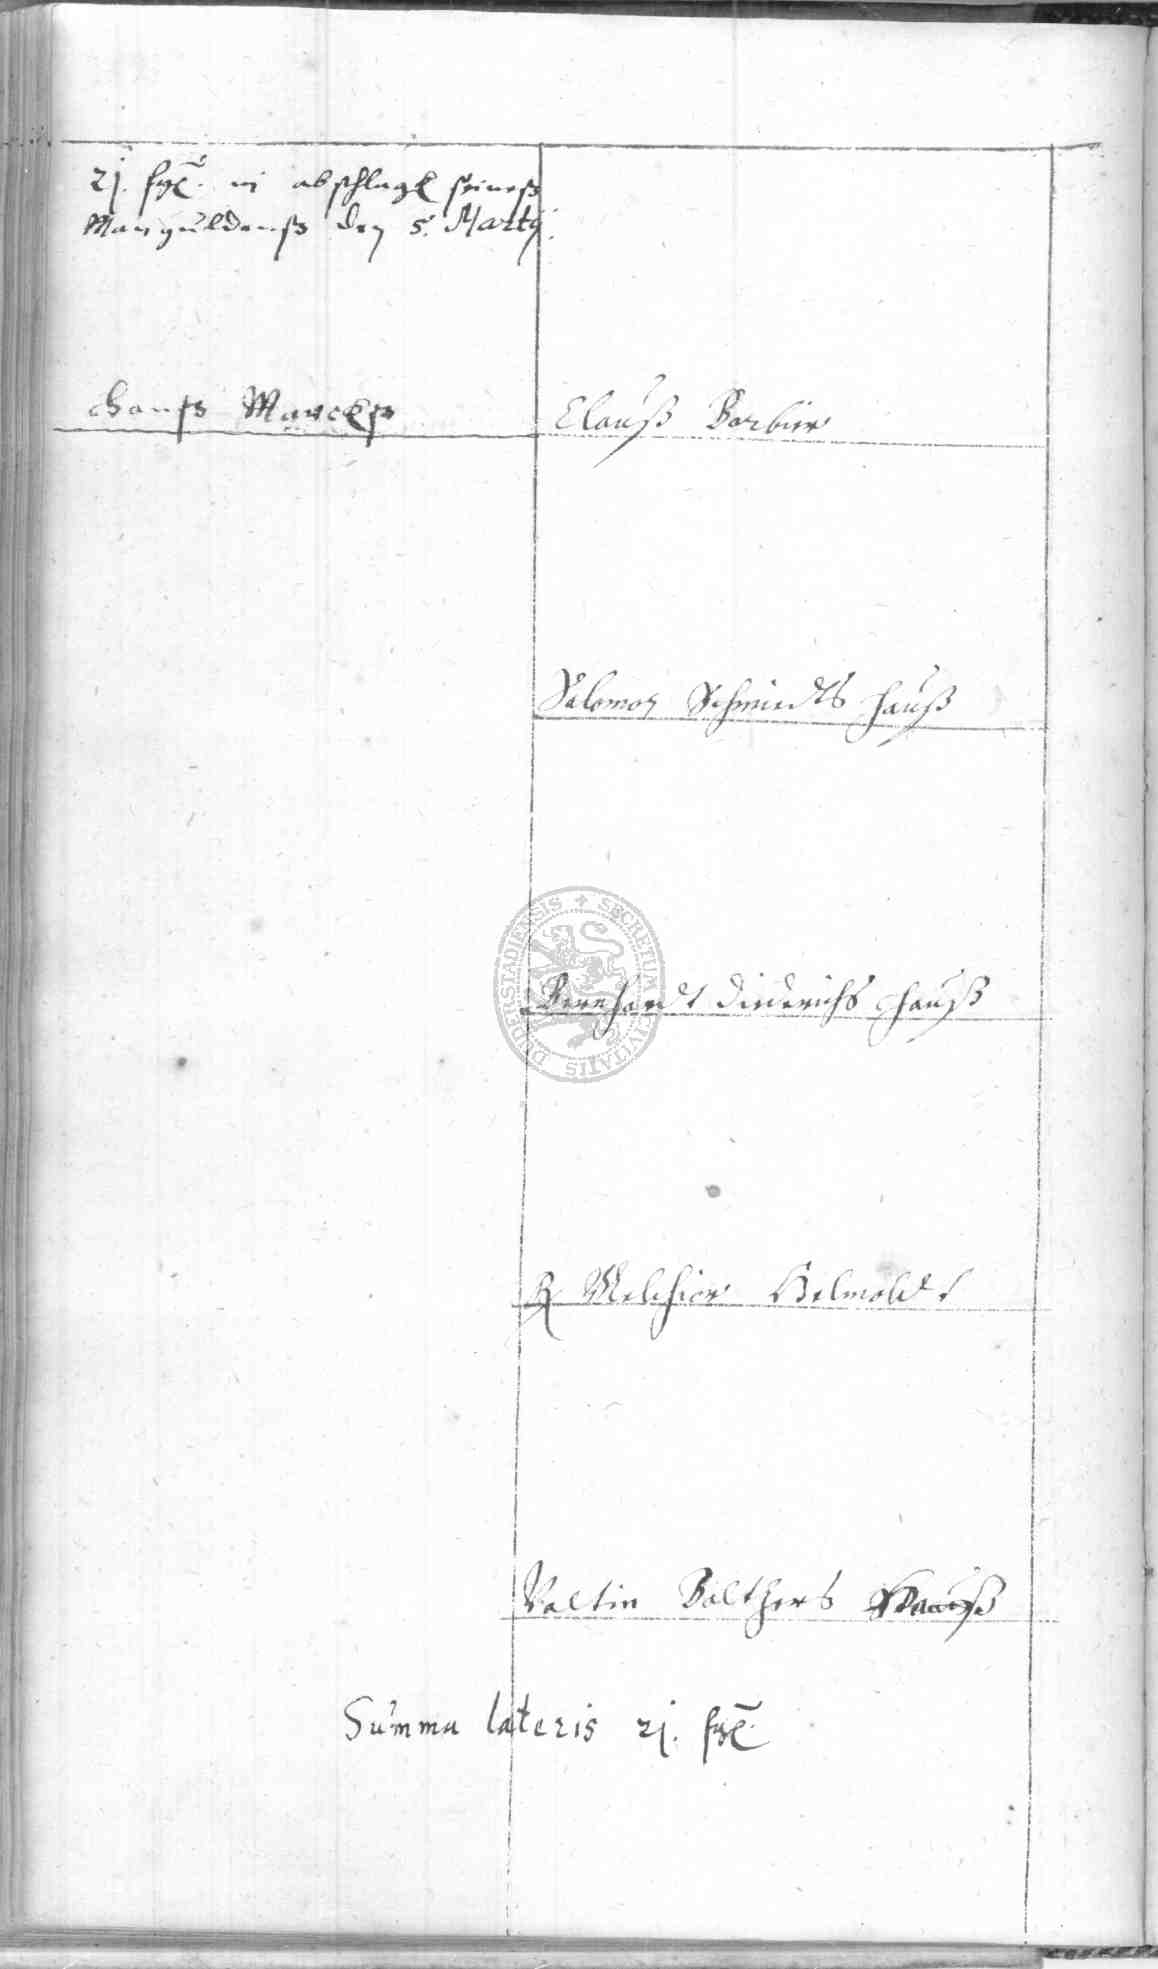 abschlagk seineß
Mangüldenß den 5. Martij.
Hanß Marckß
Clauß Barbier
Salomon Schmiedts Hauß
Bernhardt Diederichs Hauß
H Melchior Helmoldt
Valtin Balthers Hauß
Summa lateris
SECRETUM CIVITATIS DUDERSTADIENSIS